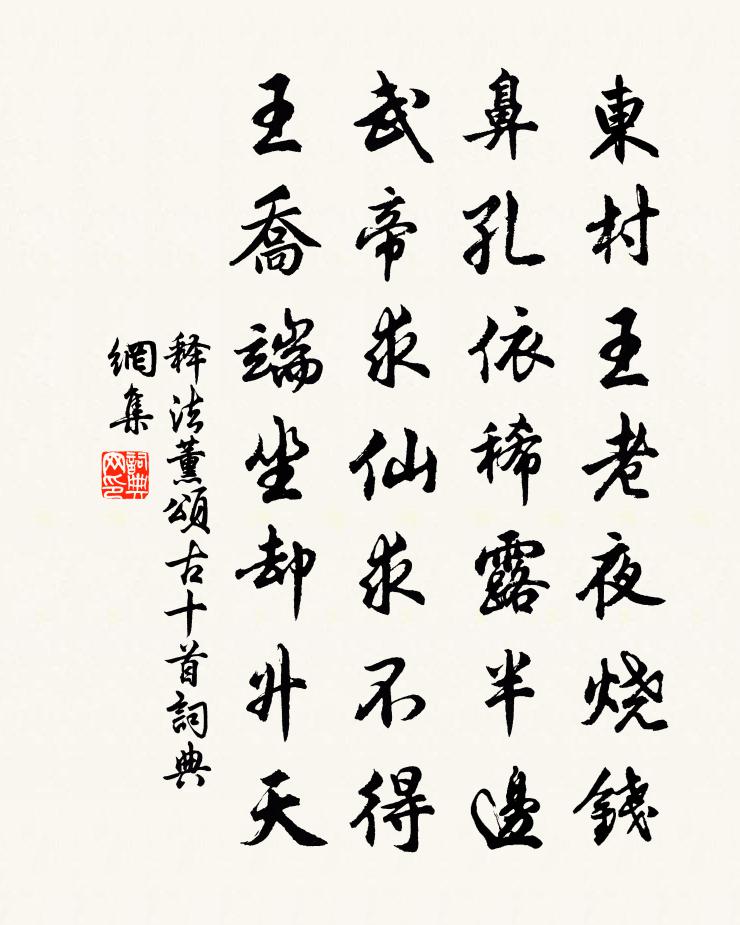 東村王老夜烧錢
鼻孔依稀露半邊
武帝求仙求不得
王喬端坐却升天
释法薰頌古十首詞典
網集
詞典
网印